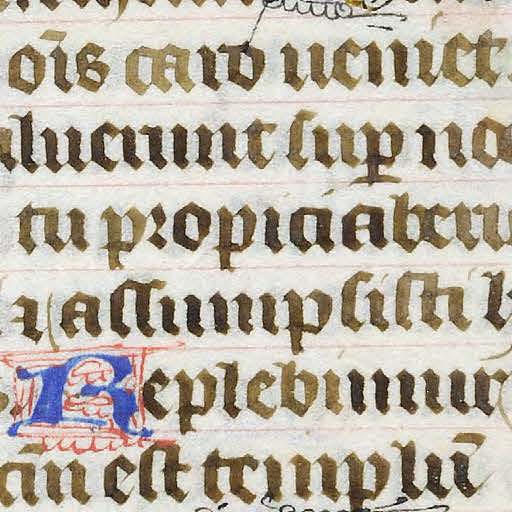 oīs caro ueniet
aluerunt sup̱ no
tu propiciaberis
& assumpsisti
Replebimur
tm̄ est templū